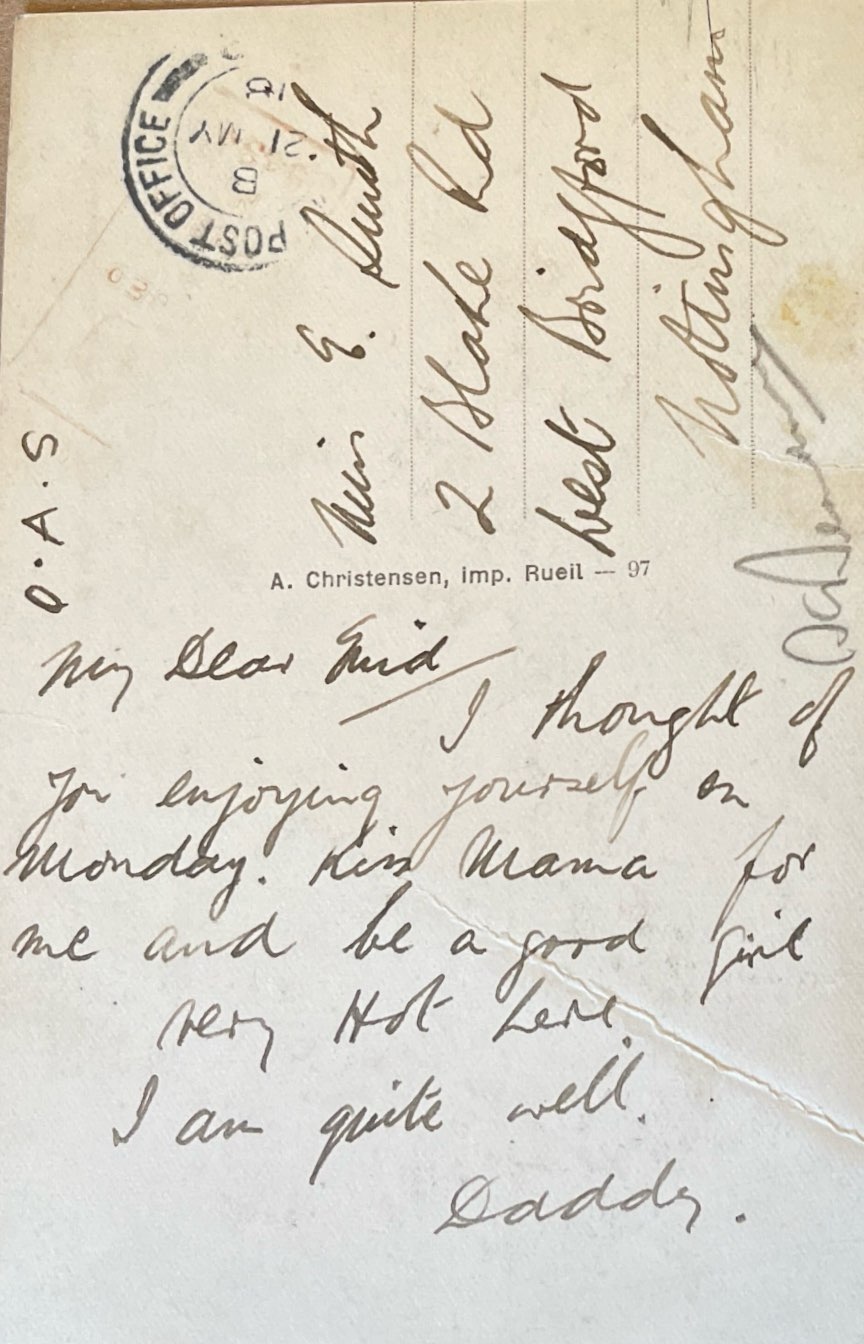 POST OFFICE
8
21 MY
18
O.A.S
Miss E. Smith
2 Blake Rd
West Bridgford
Nottingham
A. Christensen, imp. Rueil — 97
My Dear Enid
I thought of
you enjoying yourself on
Monday. Kiss Mama for
me and be a good girl
very Hot here.
I am quite well.
Daddy.